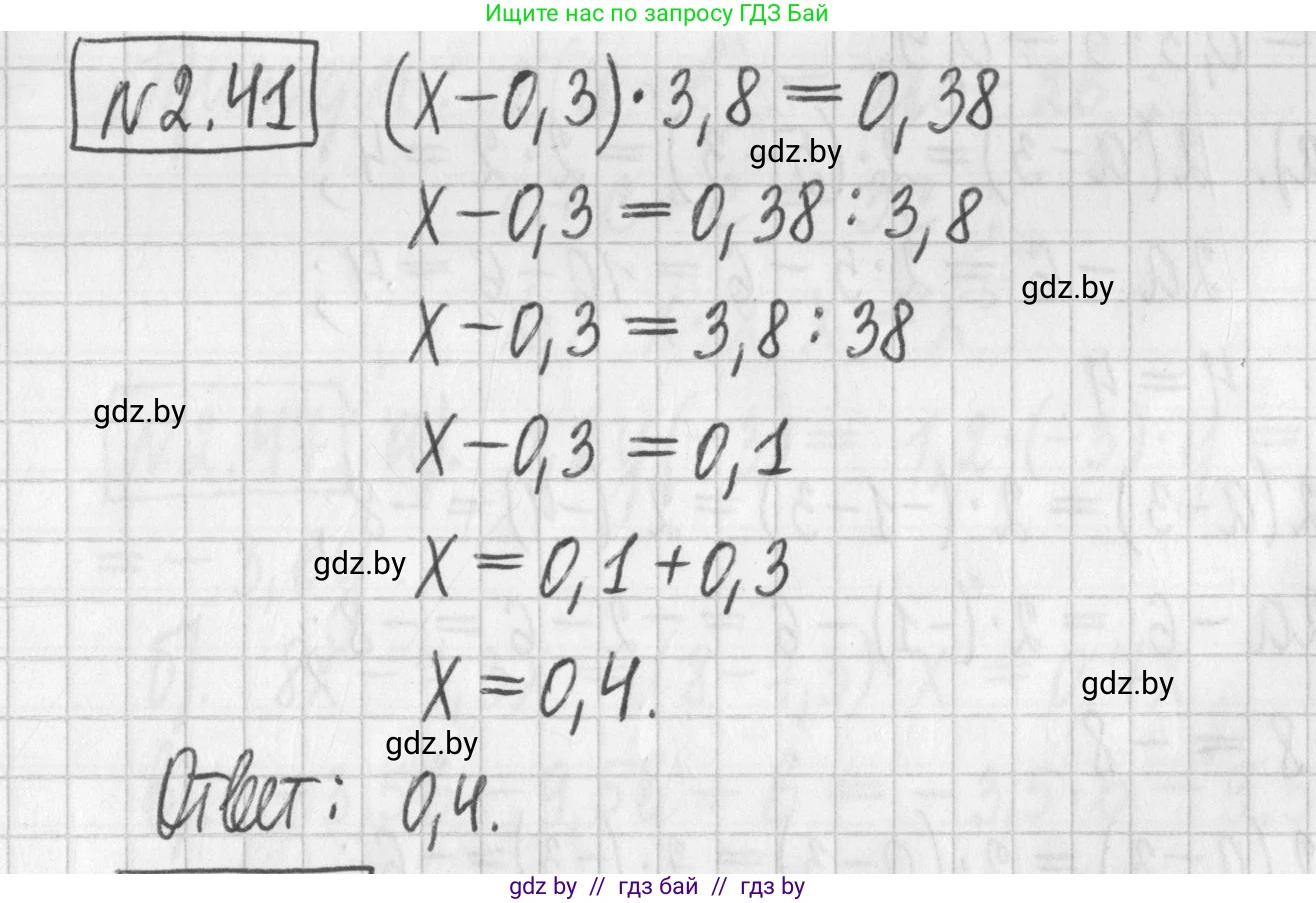 Ищите нас по запросу ГДЗ Бай
N2.41 (x-0,3)·3,8=0,38
gdz.by
x-0,3=0,38:3,8
gdz.by
x-0,3=3,8:38
gdz.by
x-0,3=0,1
gdz.by x=0,1+0,3
x=0,4.
gdz.by
gdz.by
Ответ: 0,4.
gdz by // гдз бай // gdz by